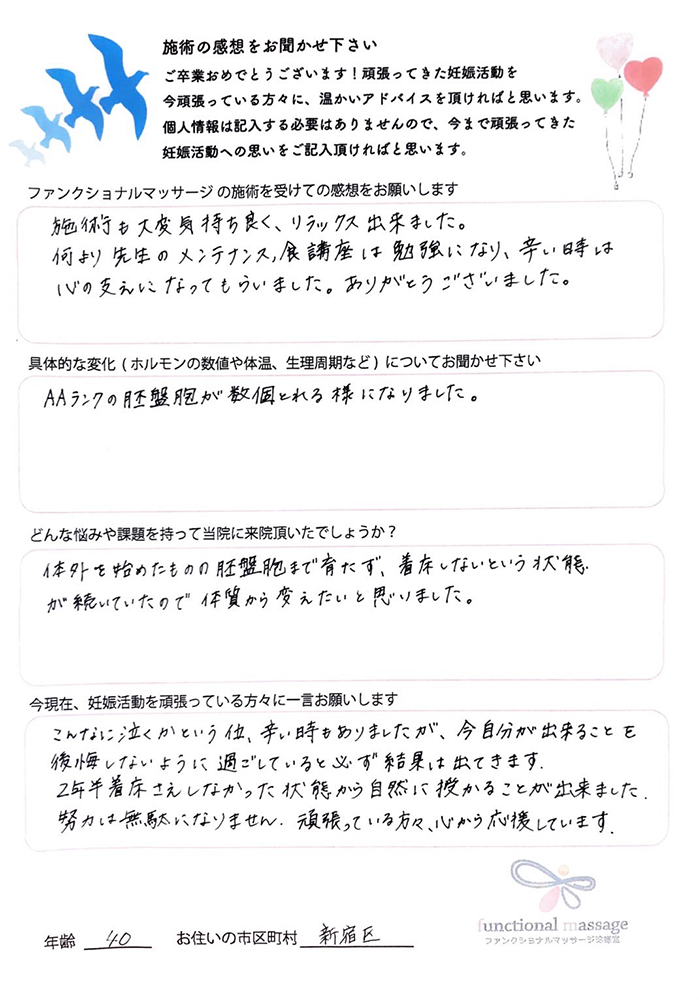 施術の感想をお聞かせ下さい
ご卒業おめでとうございます！頑張ってきた妊娠活動を
今頑張っている方々に、温かいアドバイスを頂ければと思います。
個人情報は記入する必要はありませんので、今まで頑張ってきた
妊娠活動への思いをご記入頂ければと思います。
ファンクショナルマッサージ の施術を受けての感想をお願いします
施術も大変気持ち良く、リラックス出来ました。
何より先生のメンテナンス,食講座は勉強になり、辛い時は
心の支えになってもらいました。ありがとうございました。
具体的な変化 ( ホルモンの数値や体温、生理周期など ) についてお聞かせ下さい
AAランクの胚盤胞が数個とれる様になりました。
どんな悩みや課題を持って当院に来院頂いたでしょうか？
体外を始めたものの胚盤胞まで育たず、着床しないという状態
が続いていたので体質から変えたいと思いました。
今現在、妊娠活動を頑張っている方々に一言お願いします
こんなに泣くかという位、辛い時もありましたが、今自分が出来ることを
後悔しないように過ごしていると必ず結果は出てきます.
2年半着床さえしなかった状態から自然に授かることが出来ました.
努力は無駄になりません. 頑張っている方々、心から応援しています.
functional massage
ファンクショナルマッサージ治療室
年齢 40 お住いの市区町村 新宿区